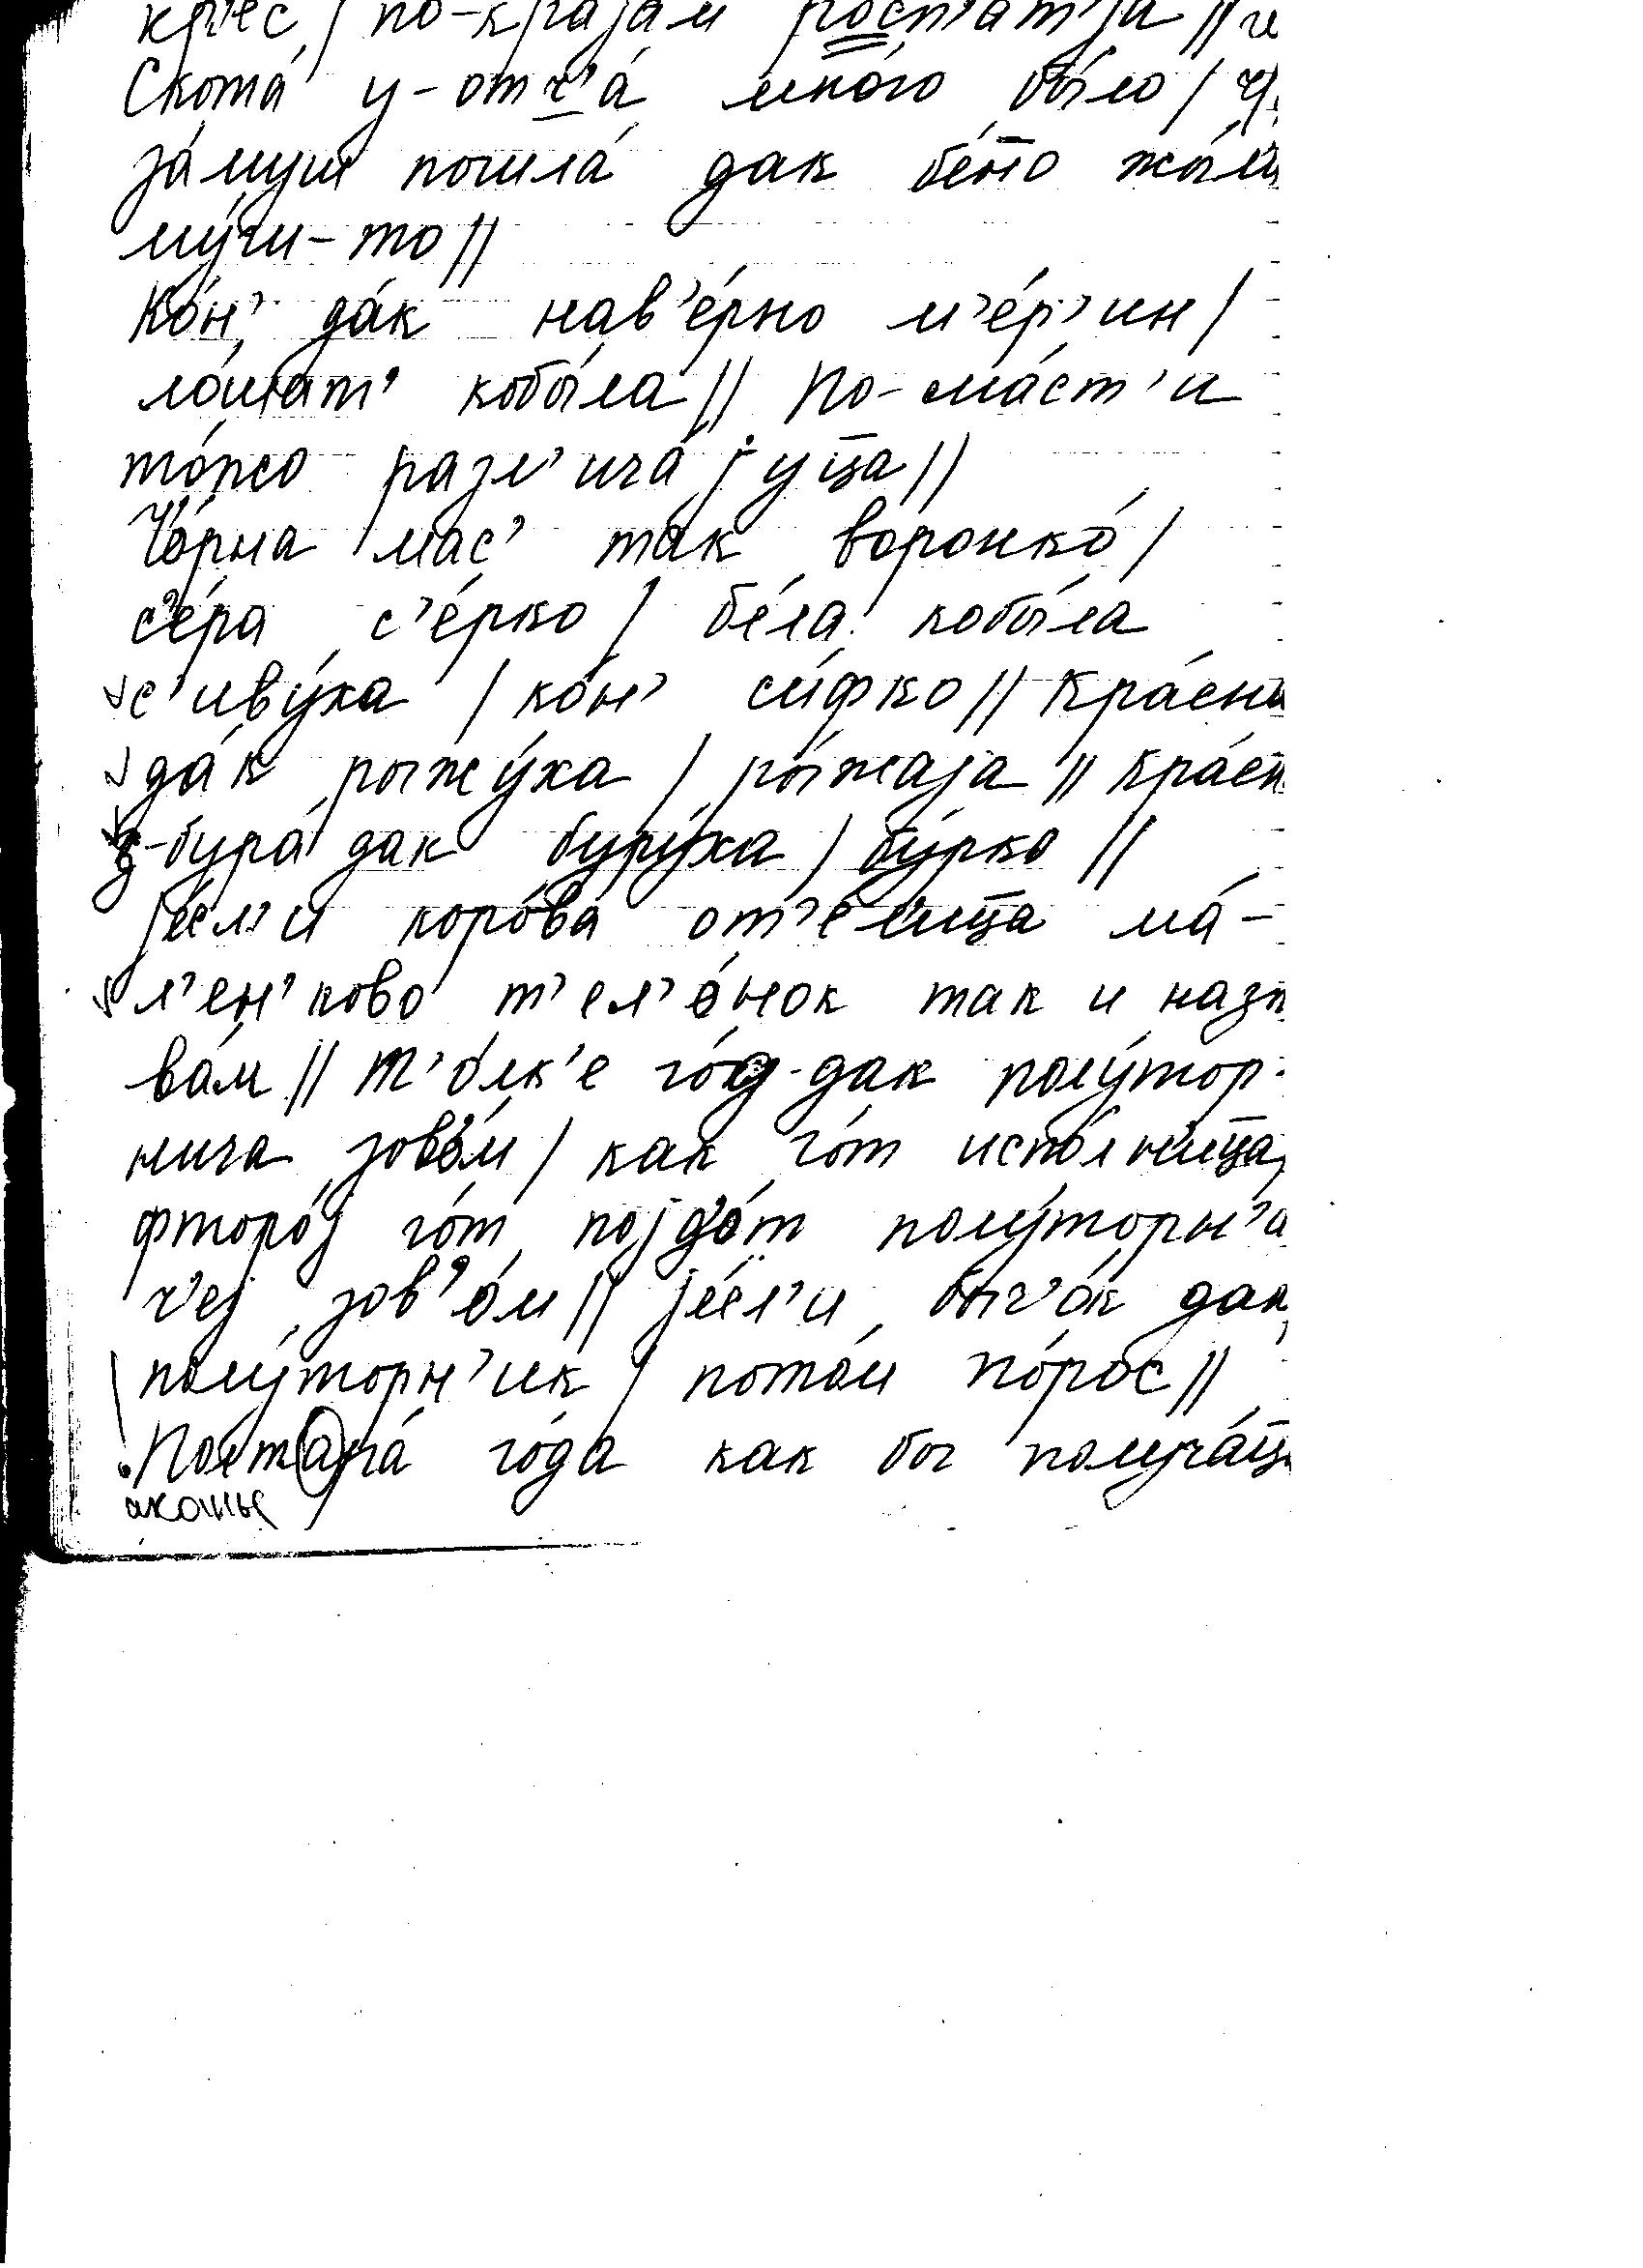 кр'ес / по-крајам рост'ат'ја //
Скота́ у-отч'а́ мно́го бы́ло /
за́муш пошла́ дак бе́но жы́ли
му́чи-то //
Ко́н' да́к нав'е́рно м'е́р'ин /
ло́шат' кобы́ла // По-ма́ст'и
то́жо разл'ича́јуца //
Чо́рна мас' так воронко́ /
с'е́ра с'е́рко / бе́ла кобы́ла
с'иву́ха / ко́н' си́фко // Кра́сна
да́к рыжу́ха / ры́жаја // Кра́сн
з-бура́ дак буру́ха / бу́рко //
је́сл'и коро́ва от'е́лица ма́-
л'ен'ково т'ел'о́нок так и назы
ва́м // Т'о́лк'е го́д-дак полу́тор-
нича зов'о́м / как го́т испо́лница
фторо́ј го́т појд'о́т полу́торн'и
ч'еј зов'о́м // је́сл'и быч'о́к дак
полу́торн'ик / пото́м по́рос //
Полтара́ го́да как бы получа́ца
аканье